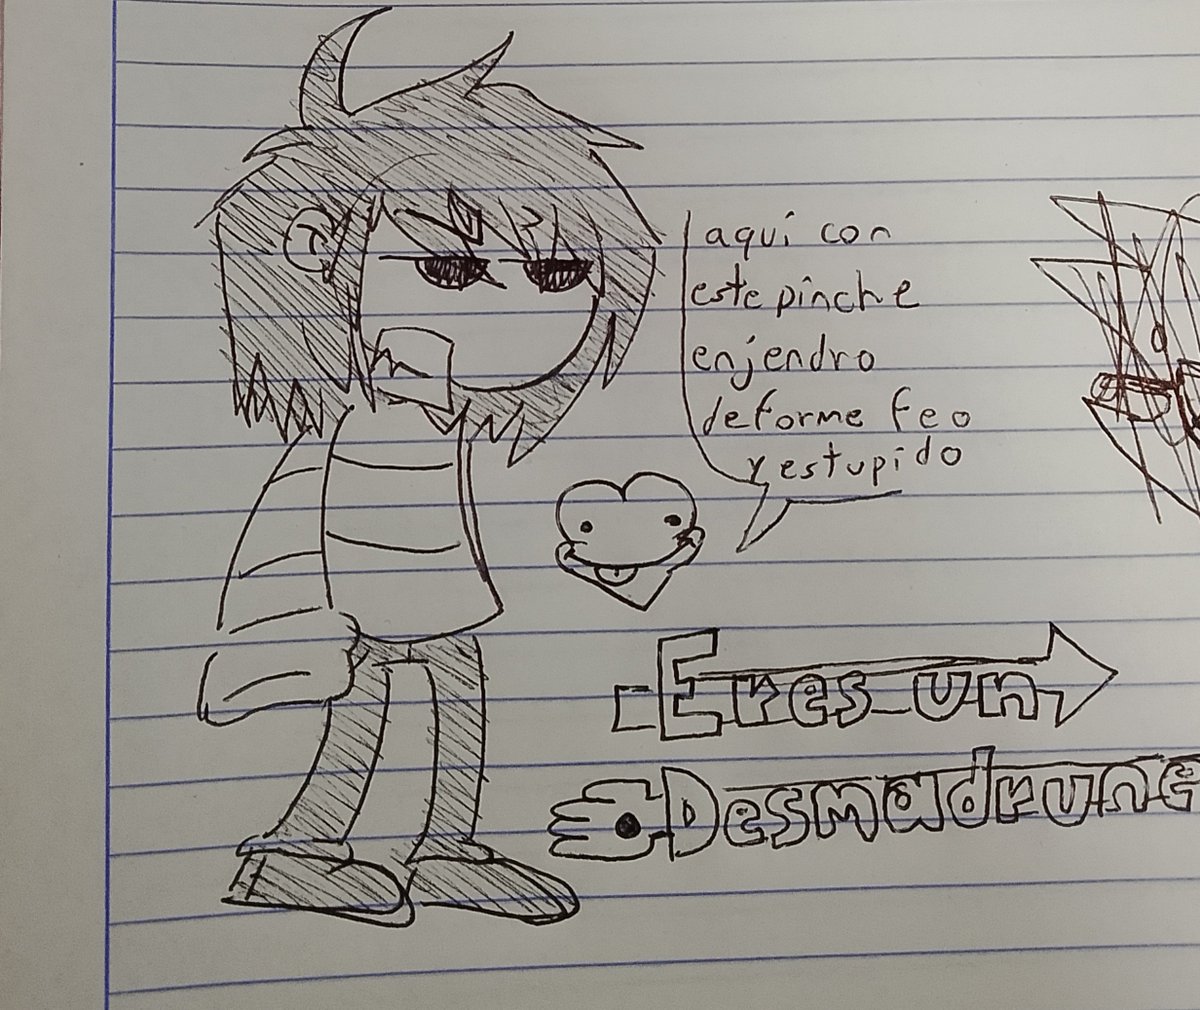 aquí con
este pinche
enjendro
deforme feo
y estupido
Eres un
Desmadrune